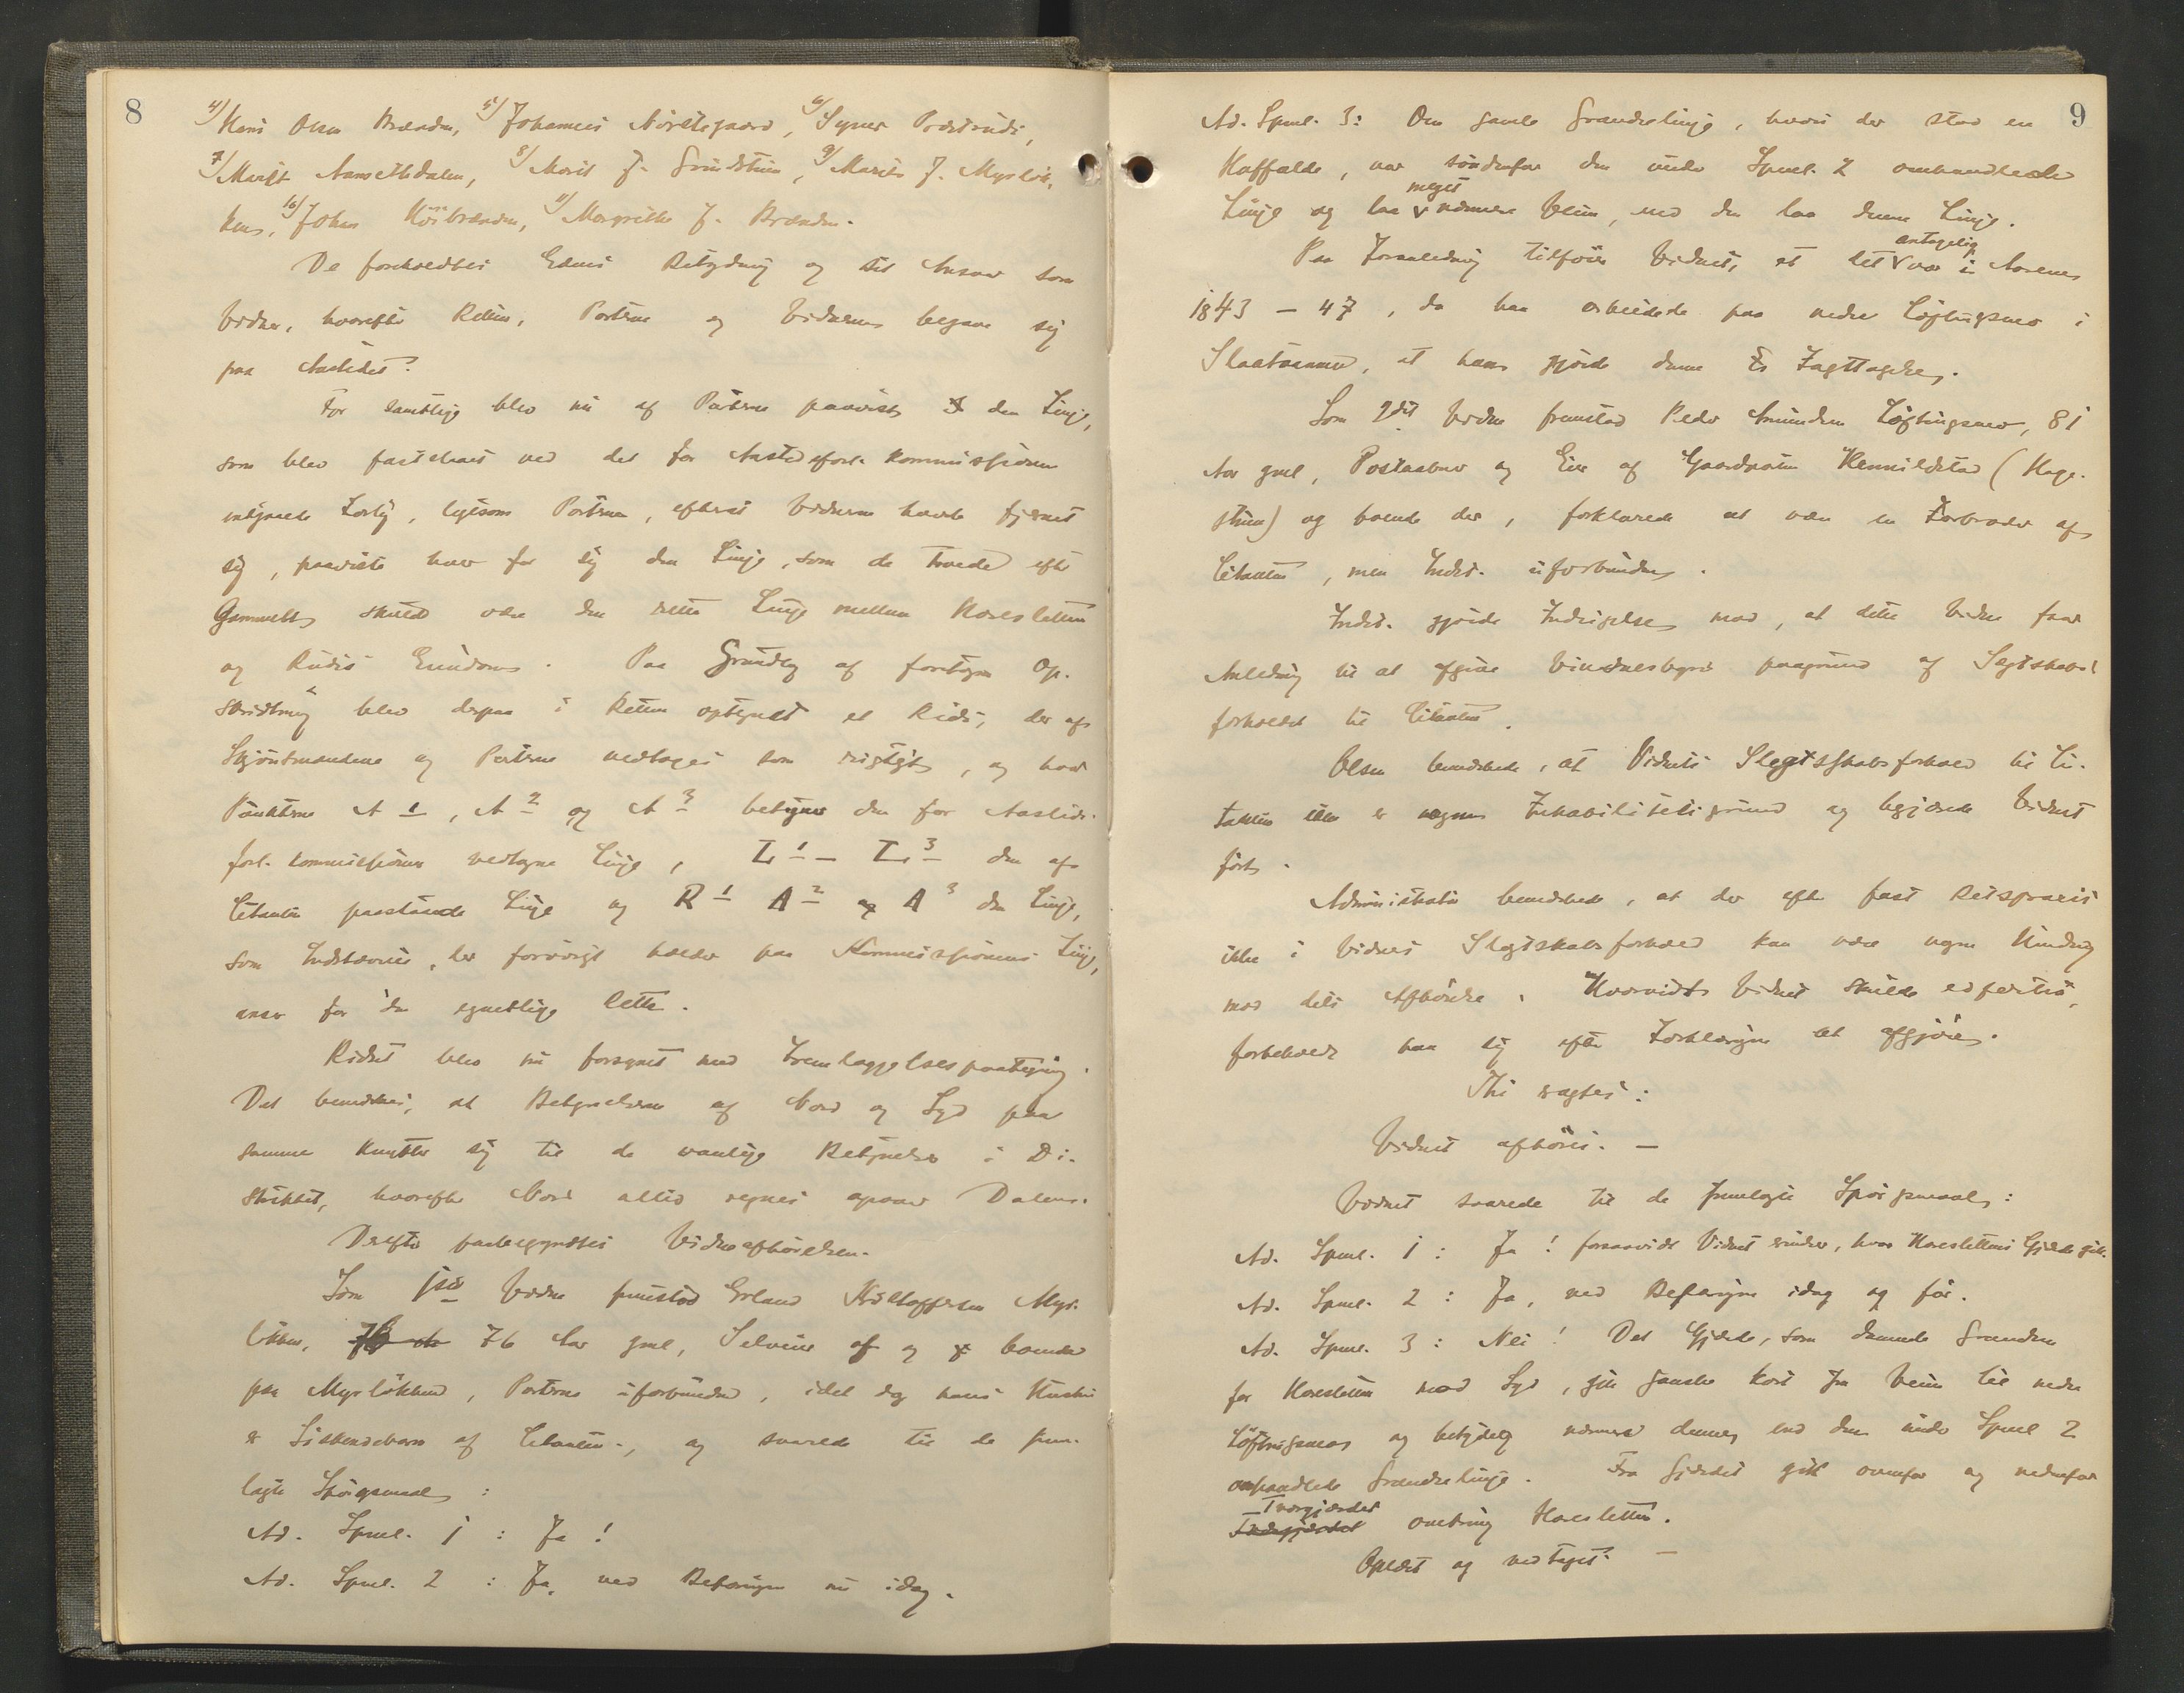 8
4) Hans Olsen Brænden, 5) Johannes Nörstegaard, 6) Syver Prestrud,
7) Marit Aamotsdalen, 8) Marit J. Grindstuen, 9) Marit J. Myrlök-
ken, 10) Johan Brænden, 11) Margrethe J. Brænden.
De foreholdtes Edens Betydning og sit Ansvar som
Vidner, hvorefter Retten, Parterne og Vidnerne begav sig
paa Aastedet.
For samtlige blev nu af Parterne paavist den Linje,
som blev fastslaaet ved det for Aastedsforl. kommissionen
indgaaede Forlig, ligesom Parterne, efterat Vidnerne havde fjernet
sig, paaviste hver for sig den Linje, som de troede efter
Gammelt skulde være den rette Linje mellem Horesletten
og Ruds Eiendomme. Paa Grundlag af foretagen Op-
skridtning blev derpaa i Retten optegnet et Rids, der af
Skjönsmændene og Parterne vedtoges som rigtigt, og hvor
Punkterne A 1, A 2 og A 3 betegner den for Aasteds-
forl. kommissionen vedtagne Linje, L 1 - L 3 den af
Citanten paastaaede Linje og R 1 A 2 og A 3 den Linje,
som Indstævnte, der forövrigt holder paa Kommissionens Linje,
anser for den egentlige rette.
Ridset blev nu forsynet med Fremlæggelsespaategning.
Det bemærkes, at Betegnelserne af Nord og Syd paa
samme knytter sig til de vanlige Betegnelser i Di-
striktet, hvorefter Nord altid regnes opover Dalen.
Derefter paabegyndtes Vidneafhörelsen.
Som 1ste Vidne fremstod Erland Kristoffersen Myr-
lökken, 76 Aar gml, Selveier af og boende
paa Myrlökken, Parterne uforbunden, idet dog hans Hustru
er Söskendebarn af Citanten, og svarede til de frem-
lagte Spörgsmaal:
Ad. Spml. 1: Ja!
Ad. Spml. 2: Ja, ved Befaringen nu idag.
9
Ad. Spml. 3: Den gamle Grændselinje, hvori der stod en
, var söndenfor den under Spml. 2 omhandlede
Linje og laa meget nærmere Veien, end den laa denne Linje.
Paa Foranledning tilföier Vidnet, at det antagelig var i Aarene
1843 - 47, da han arbeidede paa nedre Löftingsmo i
Slaataannen, at han gjorde denne Iagttagelse.
Som 2det Vidne fremstod Peder Amundsen Löftingsmo, 81
Aar gml, Postaabner og Eier af Gaardparten Hemildstad (Hage-
stuen) og boende der, forklarede at være en Farbroder af
Citanten, men Indst. uforbunden.
Indst. gjorde Indsigelse mod, at dette Vidne faar
Anledning til at afgive Vidnesbyrd paagrund af Slegtskabs-
forholdet til Citanten.
Olsen bemærkede, at Vidnets Slegtsskabsforhold til Ci-
tanten ikke er nogen Inhabilitetsgrund og begjærede Vidnet
fört.
Administrator bemærkede, at der efter fast Retspraxis
ikke i Vidnets Slegtskabsforhold kan være nogen Hindring
mod dets Afhörelse. Hvorvidt Vidnet skulde edfæstes,
forbeholdt han sig efter Forklaringen at afgjöre.
Thi sagtes:
Vidnet afhöres. —
Vidnet svarede til de fremlagte Spörgsmaal:
Ad. Spml. 1: Ja! forsaavidt Vidnet erindrer, hvor Horeslettens Gjærde gik.
Ad. Spml. 2: Ja, ved Befaringen idag og för.
Ad. Spml. 3: Nei! Det Gjærde, som dannede Grændsen
for Horesletten mod Syd, gik ganske kort fra Veien til nedre
Löftingsmo og betydelig nærmere denne, end den under Spml 2
omhandlede Grændselinje. Fra Gjærdet gik ovenfor og nedenfor
Tvergjærder omkring Horesletten.
Oplæst og vedtaget. —